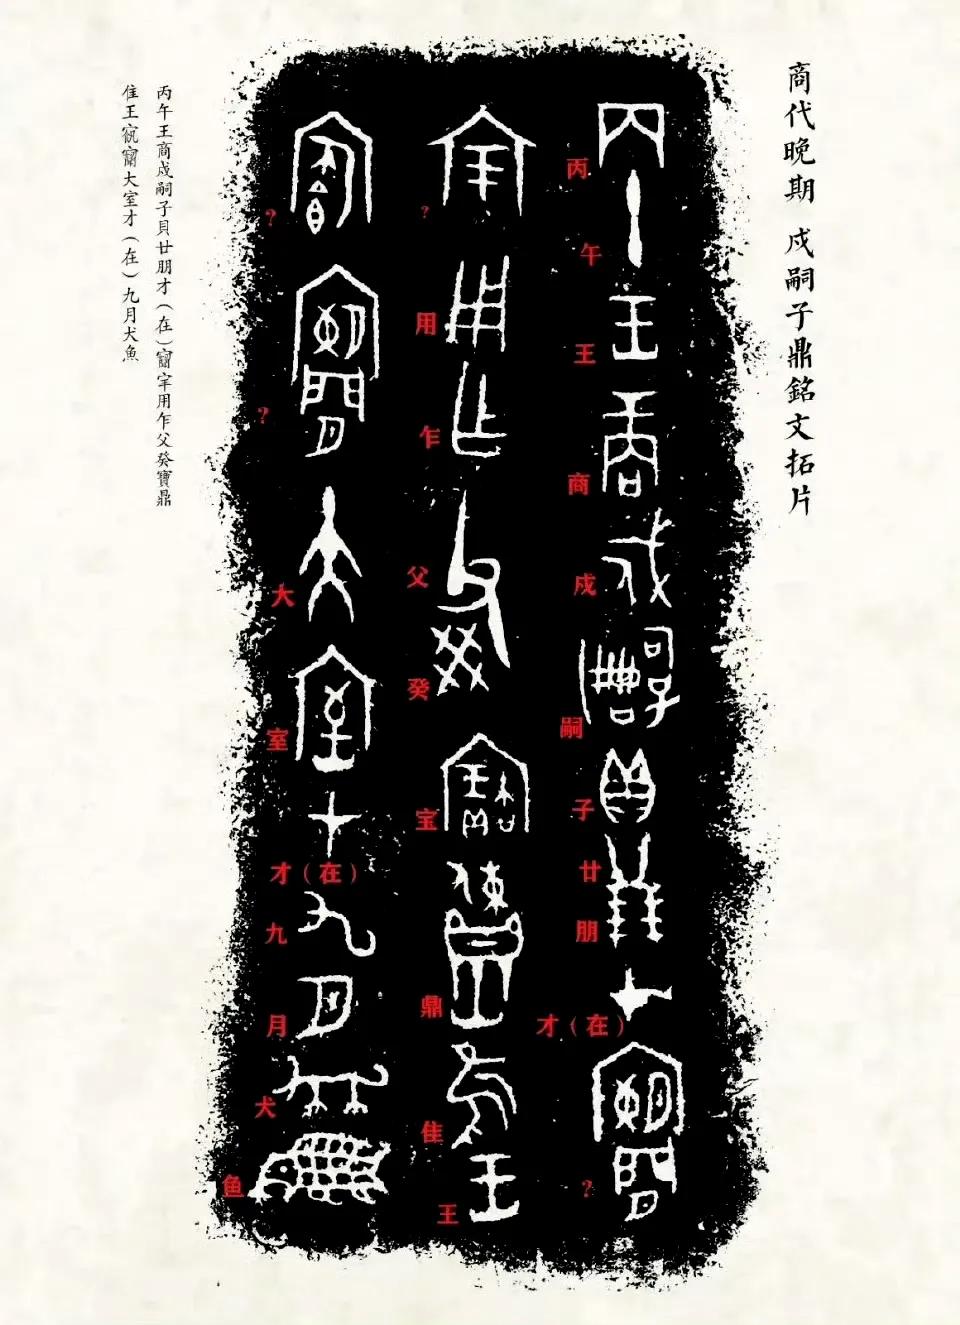 商代晚期 戍嗣子鼎銘文拓片
丙午王商戍嗣子廿朋才（在）?
?用乍父癸宝鼎隹王
??大室才（在）九月犬鱼
丙午王商戍嗣子貝廿朋才（在）用乍父癸寶鼎
隹王大室才（在）九月犬魚